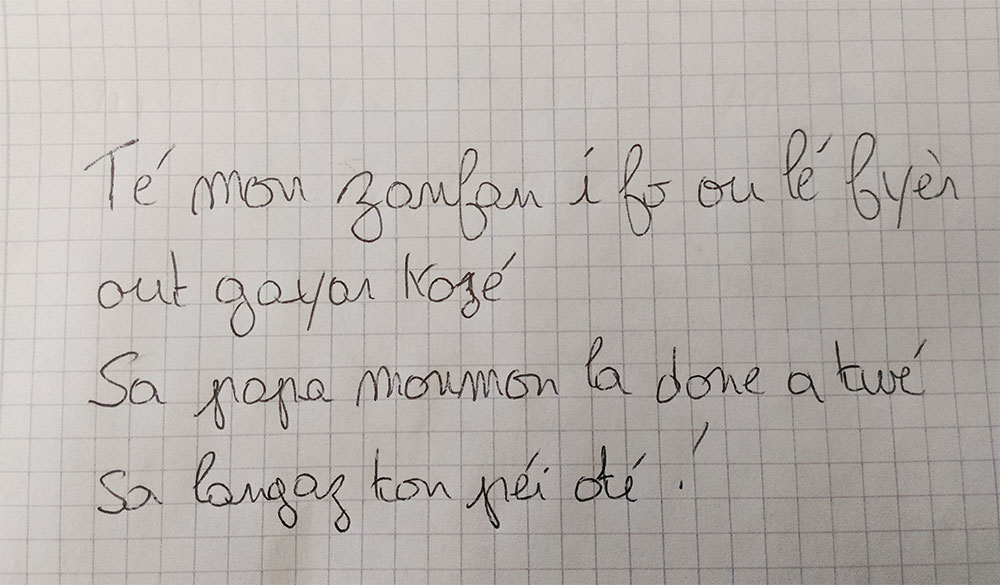 Té mon zanfan i fo ou lé fyèr
out gayar kozé
Sa papa mouman la done a twé
sa langaz ton péi oté !